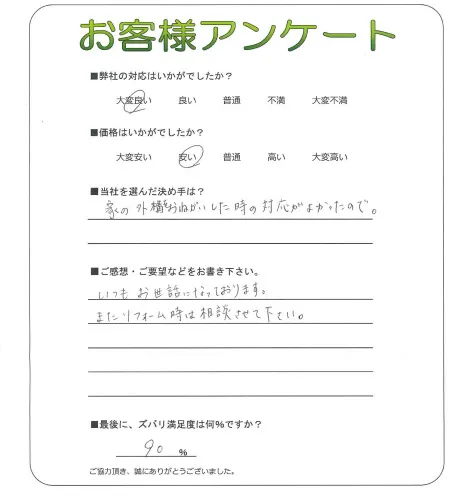 お客様アンケート
■弊社の対応はいかがでしたか？
大変良い 良い 普通 不満 大変不満
■価格はいかがでしたか？
大変安い 安い 普通 高い 大変高い
■当社を選んだ決め手は？
家の外構をおねがいした時の対応がよかったので。
■ご感想・ご要望などをお書き下さい。
いつもお世話になっております。
またリフォーム時は相談させて下さい。
■最後に、ズバリ満足度は何％ですか？
90 ％
ご協力頂き、誠にありがとうございました。